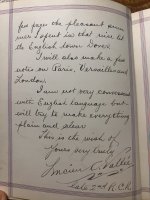 few pages the pleasant
I spent in that nice
English town Dover.
I will also make a few
notes on Paris, Versailles and
London.
I am not very conversed
with English language but
will try to make everything
plain and clear.
This is the wish of
Yours very truly
22nd
Late 2nd R.C.R.